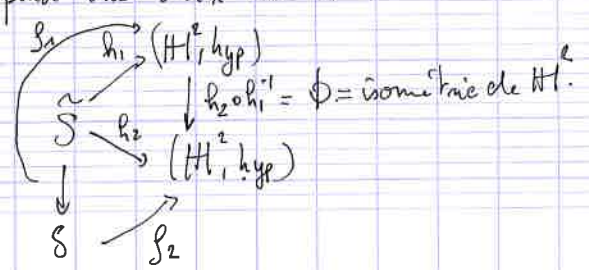 ρ₁ h₁ (ℍ², hyp)
h₂∘h₁⁻¹ = ϕ = isométrie de ℍ².
S̃ h₂
(ℍ², hyp)
S ρ₂